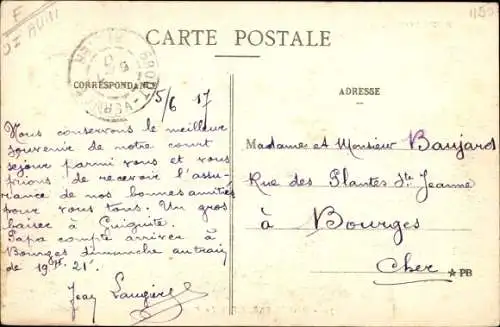 CARTE POSTALE
CORRESPONDANCE
5/6 17
Nous conservons le meilleur
souvenir de notre court
séjour parmi vous et vous
prions de recevoir l'assu-
rance de nos bonnes amitiés
pour vous tous. Un gros
baiser à Guiguite.
Papa compte arriver à
Bourges dimanche au train
de 19h 21.
Jean Laugier
ADRESSE
Madame et Monsieur Baujard
Rue des Plantes Ste Jeanne
à Bourges
Cher
★ PB